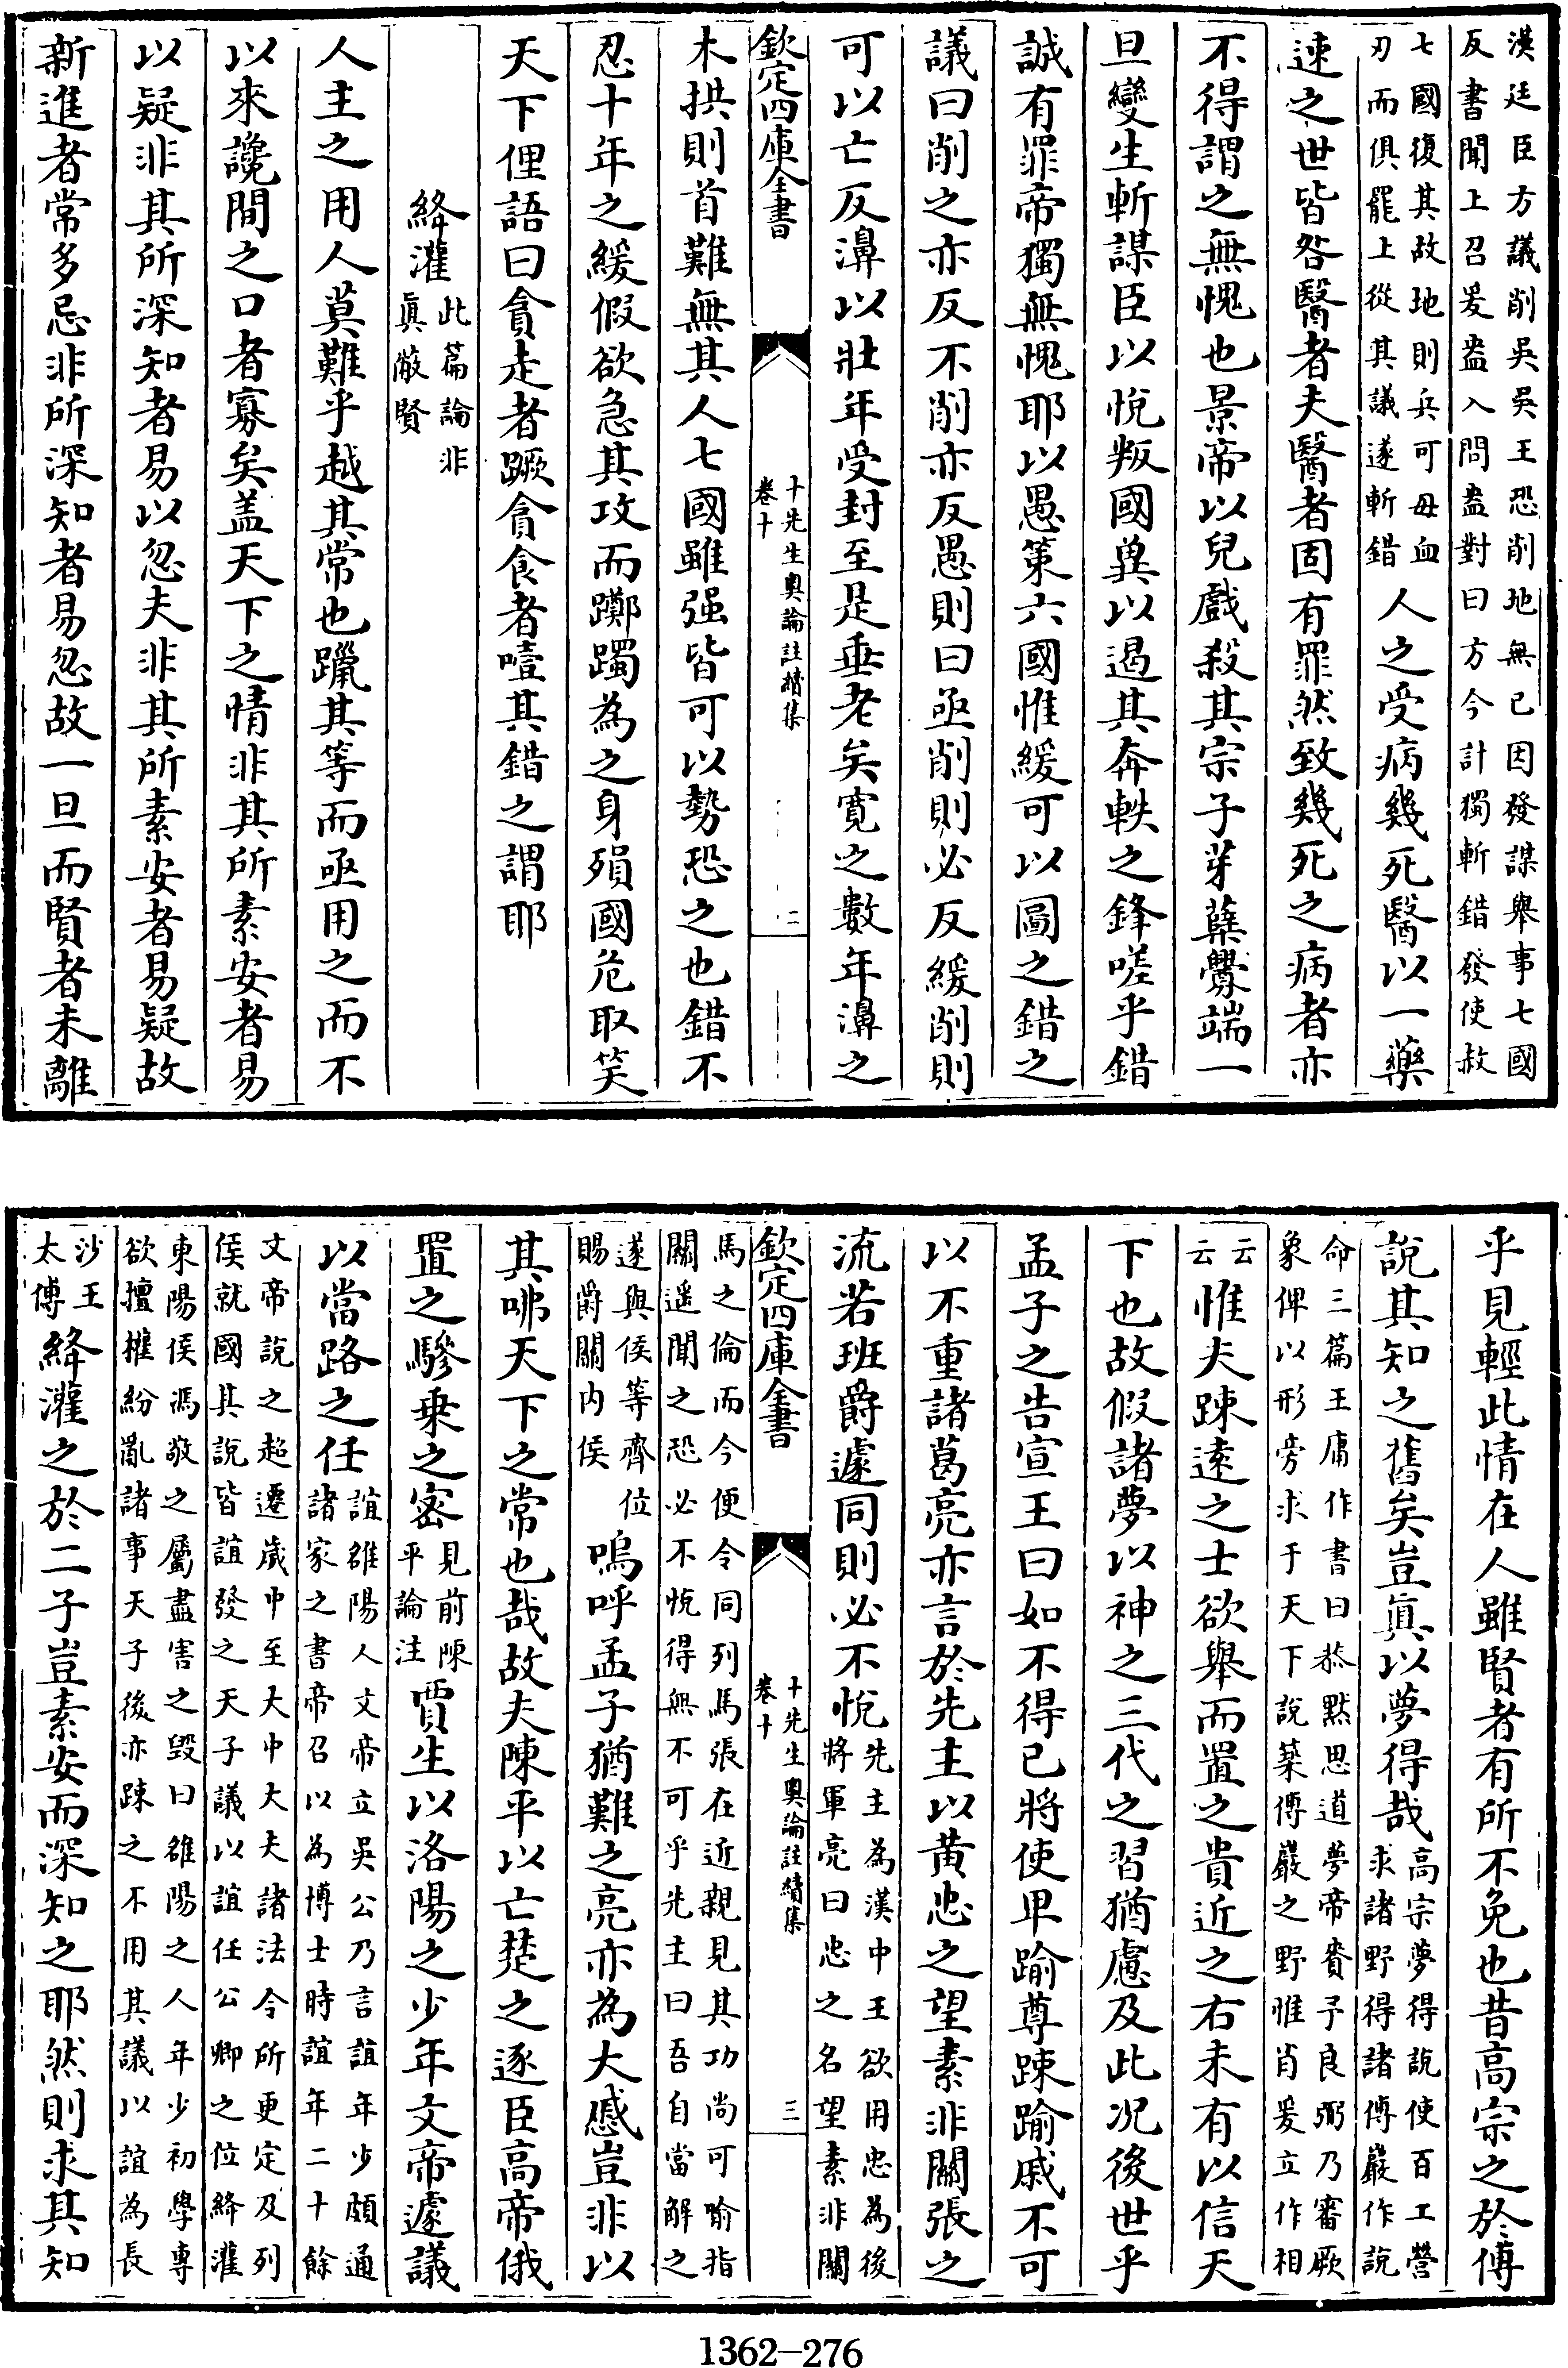 漢廷臣方議削吳吳王恐削地無已因發謀舉事七國
反書聞上召爰盎入問盎對曰方今計獨斬錯發使赦
七國復其故地則兵可毋血
刃而俱罷上從其議遂斬錯
人之受病幾死醫以一藥
速之世皆咎醫者夫醫者固有罪然致幾死之病者亦
不得謂之無愧也景帝以兒戲殺其宗子芽蘖釁端一
旦變生斬謀臣以悅叛國兾以遏其奔軼之鋒嗟乎錯
誠有罪帝獨無愧耶以愚策六國惟緩可以圖之錯之
議曰削之亦反不削亦反愚則曰亟削則必反緩削則
可以亡反濞以壯年受封至是垂老矣寛之數年濞之
欽定四庫全書
十先生奧論註續集
卷十
二
木拱則首難無其人七國雖强皆可以勢恐之也錯不
忍十年之緩假欲急其攻而躑躅為之身殞國危取笑
天下俚語曰貪走者蹶貪食者噎其錯之謂耶
絳灌
此篇論非
眞蔽賢
人主之用人莫難乎越其常也躐其等而亟用之而不
以來讒間之口者寡矣盖天下之情非其所素安者易
以疑非其所深知者易以忽夫非其所素安者易疑故
新進者常多忌非所深知者易忽故一旦而賢者未離
乎見輕此情在人雖賢者有所不免也昔高宗之於傅
說其知之舊矣豈眞以夢得哉
高宗夢得說使百工營
求諸野得諸傅巖作說
命三篇王庸作書曰恭默思道夢帝賚予良弼乃審厥
象俾以形旁求于天下說築傅巖之野惟肖爰立作相
云
云
惟夫踈逺之士欲舉而置之貴近之右未有以信天
下也故假諸夢以神之三代之習猶慮及此况後世乎
孟子之告宣王曰如不得已將使卑踰尊踈踰戚不可
以不重諸葛亮亦言於先主以黄忠之望素非關張之
流若班爵遽同則必不悅
先主為漢中王欲用忠為後
將軍亮曰忠之名望素非關
欽定四庫全書
十先生奧論註續集
卷十
三
馬之倫而今便令同列馬張在近親見其功尚可喻指
關遥聞之恐必不悅得無不可乎先主曰吾自當解之
遂與侯等齊位
賜爵關内侯
嗚呼孟子猶難之亮亦為大慼豈非以
其咈天下之常也哉故夫陳平以亡楚之逐臣高帝俄
置之驂乗之宻
見前陳
平論注
賈生以洛陽之少年文帝遽議
以當路之任
誼雒陽人文帝立吳公乃言誼年少頗通
諸家之書帝召以為博士時誼年二十餘
文帝說之超遷歲中至大中大夫諸法令所更定及列
侯就國其說皆誼發之天子議以誼任公卿之位絳灌
東陽侯馮敬之屬盡害之毁曰雒陽之人年少初學專
欲擅權紛亂諸事天子後亦踈之不用其議以誼為長
沙王
太傅
絳灌之於二子豈素安而深知之耶然則求其知
1362-276